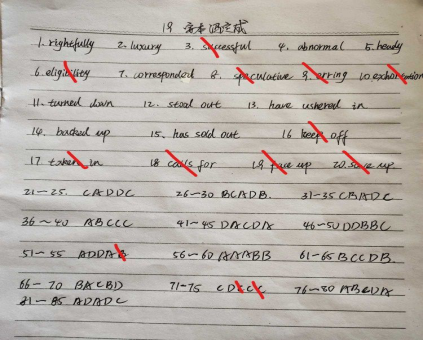 1. rightfully 2. luxury 3. successful 4. abnormal 5. heady
6. eligibility 7. corresponded 8. speculative 9. erring 10. exhortation
11. turned down 12. stood out 13. have ushered in
14. backed up 15. has sold out 16 keep off
17 taken in 18 calls for 19 gave up 20. save up
21-25. CADDC 26-30 BCADB. 31-35 CBADC
36-40 ABCCC 41-45 DACDA 46-50 DDBBC
51-55 ADDAB 56-60 AAABB 61-65 BCCDB.
66-70 BACBD 71-75 CDCCC 76-80 ABCDA
81-85 ADADC